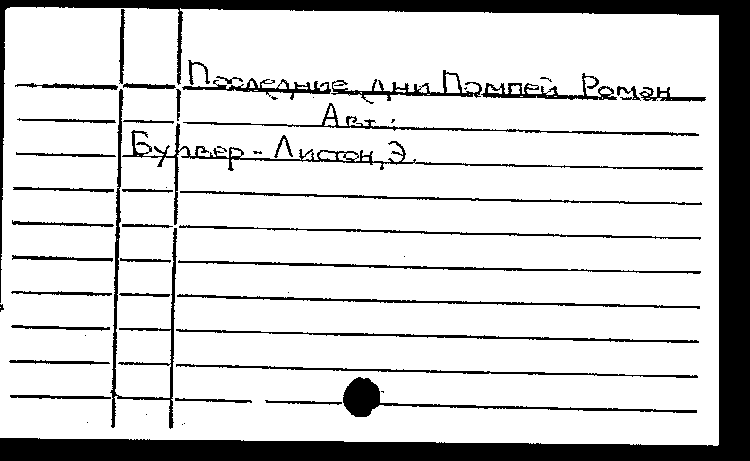 Последние дни Помпей Роман
Авт.:
Бульвер-Листон, Э.